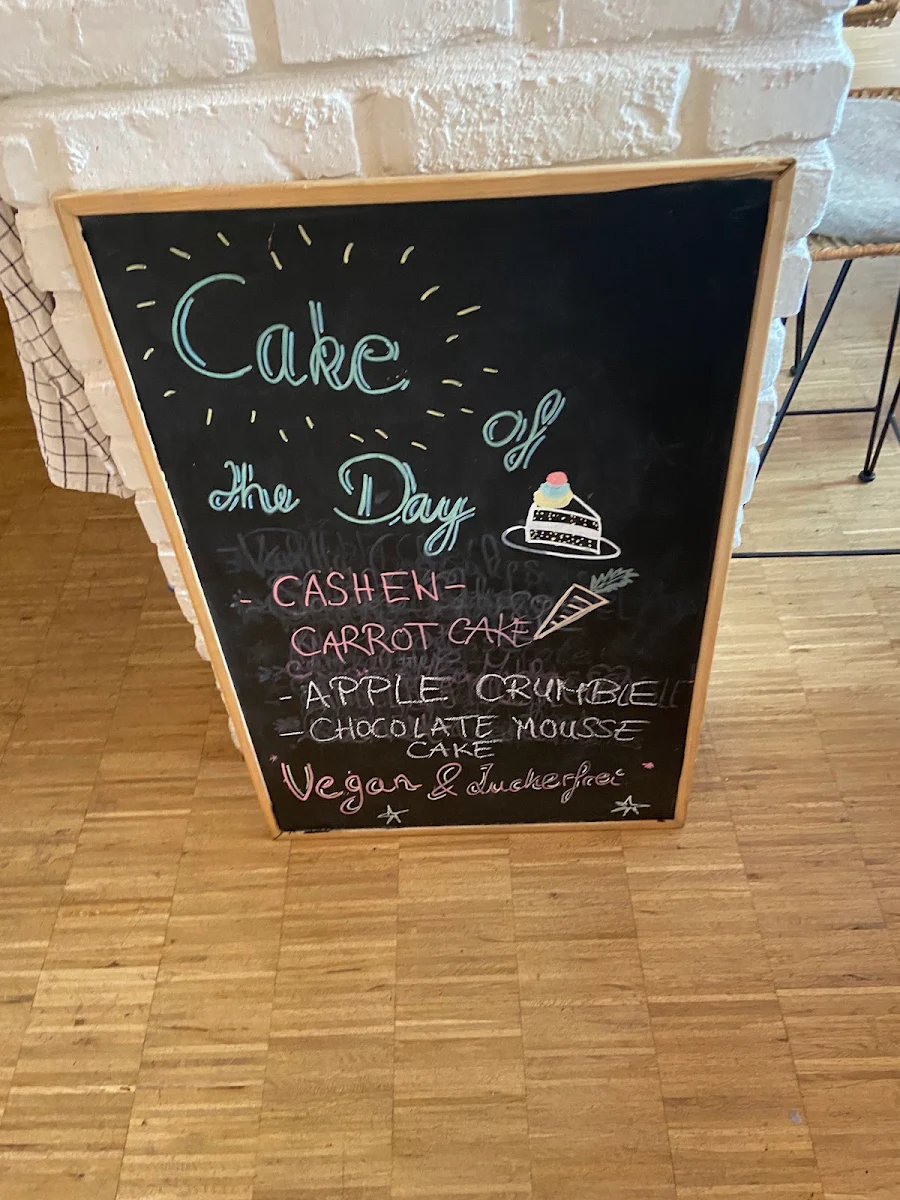 Cake
of
the Day
- CASHEN-
CARROT CAKE
- APPLE CRUMBLE
- CHOCOLATE MOUSSE
CAKE
Vegan & zuckerfrei